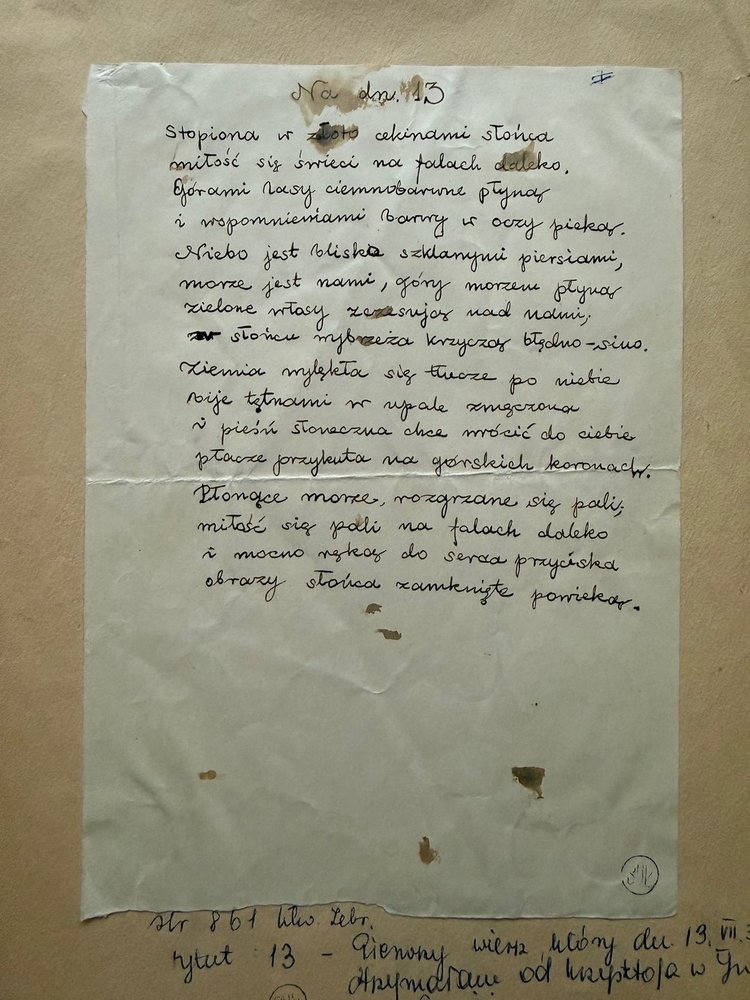 Na dn. 13
Stopiona w złoto cekinami słońca
miłość się świeci na falach daleko.
Górami lasy ciemnobarwne płyną
i wspomnieniami barwy w oczy pieką.
Niebo jest blisko szklanymi piersiami,
morze jest nami, góry morzem płyną
zielone włosy zczesując nad nami;
w słońcu wybrzeża krzyczą błędno-sino.
Ziemia wylękła się tłucze po niebie
bije tętnami w upale zmęczona
i pieśń słoneczna chce wrócić do ciebie
płacze przykuta na górskich koronach.
Płonące morze, rozgrzane się pali;
miłość się pali na falach daleko
i mocno ręką do serca przyciska
obrazy słońca zamknięte powieką.
str 861 Utw. Zebr.
tytuł 13 - Pierwszy wiersz który dn 13. VII.
otrzymałam od Krzysztofa w